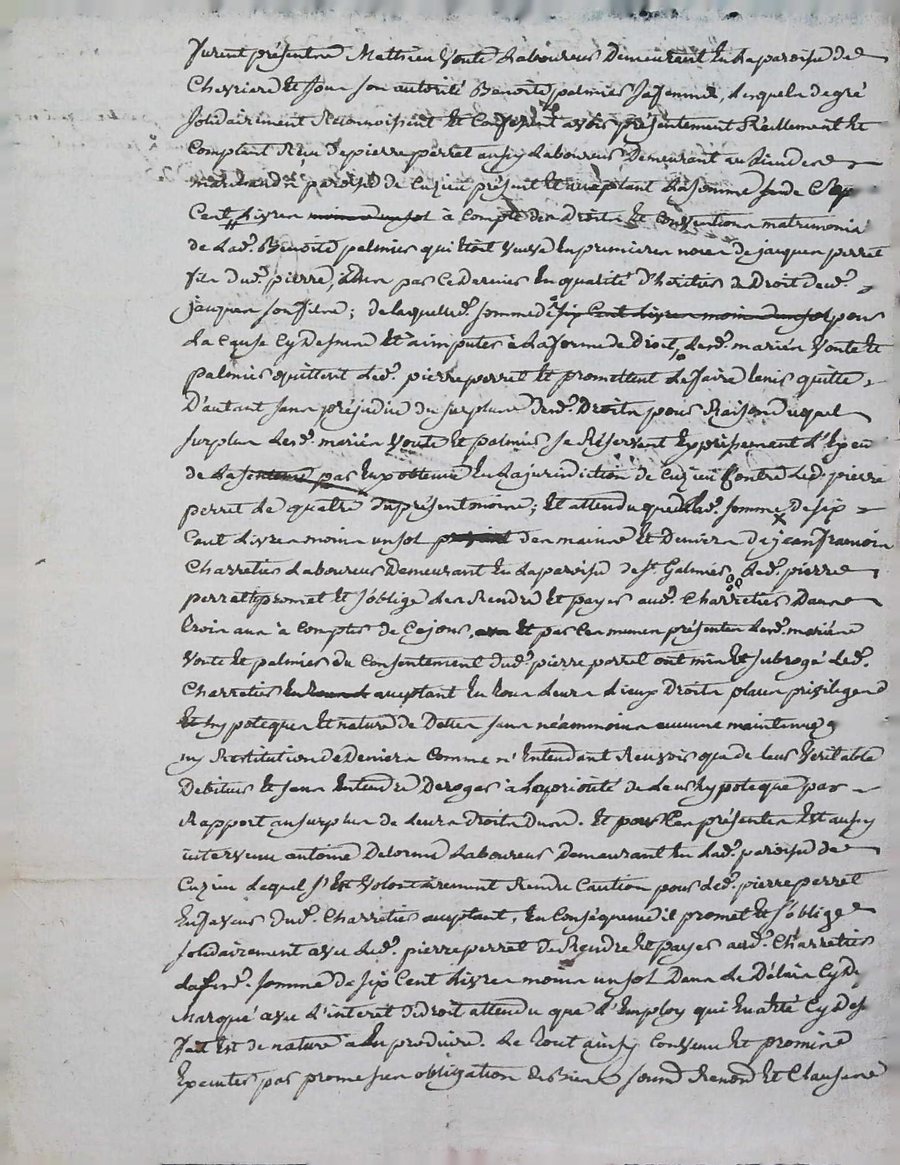 furent présents Mathieu Voute Laboureur Demeurant En La paroisse de
Chevriere Et sous son autorité Benoite palmier sa femme, Lesquels de gré
solidairement Reconnoissent Et Confessent avoir présentement Réellement Et
Comptant Reçu de pierre perret aussy Laboureur Demeurant au Lieu des
paroisse de Cuzieu présent Et acceptant La somme de six
Cent Livres moins un sol à Compte des Droits Et Conventions matrimonia
de Lad. Benoite palmier qui Etoit veuve En premieres noces de jacques perret
fils dud. pierre, par Ce dernier En qualité d'héritier de Droit dud.
jacques son fils; de laquelle somme de six Cent Livres moins un sol pour
La Cause Cy Dessus Et à imputer à La forme de Droit, Lesd. mariés Voute Et
palmier quittent Led. pierre perret Et promettent Le faire tenir quitte,
D'autant sans préjudice du surplus desd. Droits pour Raison duquel
surplus Lesd. mariés Voute Et palmier se Réservent Expressement
de La sentence par Eux obtenue En La jurisdiction de Cuzieu Contre Led. pierre
perret Le quatre du présent mois; Et attendu que Lad. somme de six
Cent Livres moins un sol des mains Et Deniers de jean françois
Charretier Laboureur Demeurant En La paroisse de St. Galmier, Led. pierre
perret promet Et s'oblige Les Rendre Et payer aud. Charretier Dans
trois ans à Compter de Ce jour, Et par Ces mêmes présentes Lesd. mariés
Voute Et palmier du Consentement dud. pierre perret ont mis Et subrogé Led.
Charretier acceptant En tous Leurs Lieux Droits places privileges
Et hypoteques Et nature de Dettes sans néammoins aucune maintenue
ny Restitution de Deniers Comme n'Entendant Recevoir que de leur Veritable
Debiteur Et sans Entendre Deroger à La priorité de Leur hypoteque par
Rapport au surplus de Leurs Droits dus. Et Ces présentes Est aussy
intervenu antoine Delorme Laboureur Demeurant En Lad. paroisse de
Cuzieu Lequel s'Est Volontairement Rendu Caution pour Led. pierre perret
En faveur dud. Charretier acceptant, En Conséquence il promet Et s'oblige
solidairement avec Led. pierre perret de Rendre Et payer aud. Charretier
Lad. somme de six Cent Livres moins un sol Dans Le Délai Cy De
Marqué avec L'interet de Droit attendu que L'Employ qui En a Eté Cy Des
fait Est de nature à En produire. Le tout ainsy Convenu Et promis
Executer par promesses obligation de Biens soumis Renond Et Clauses